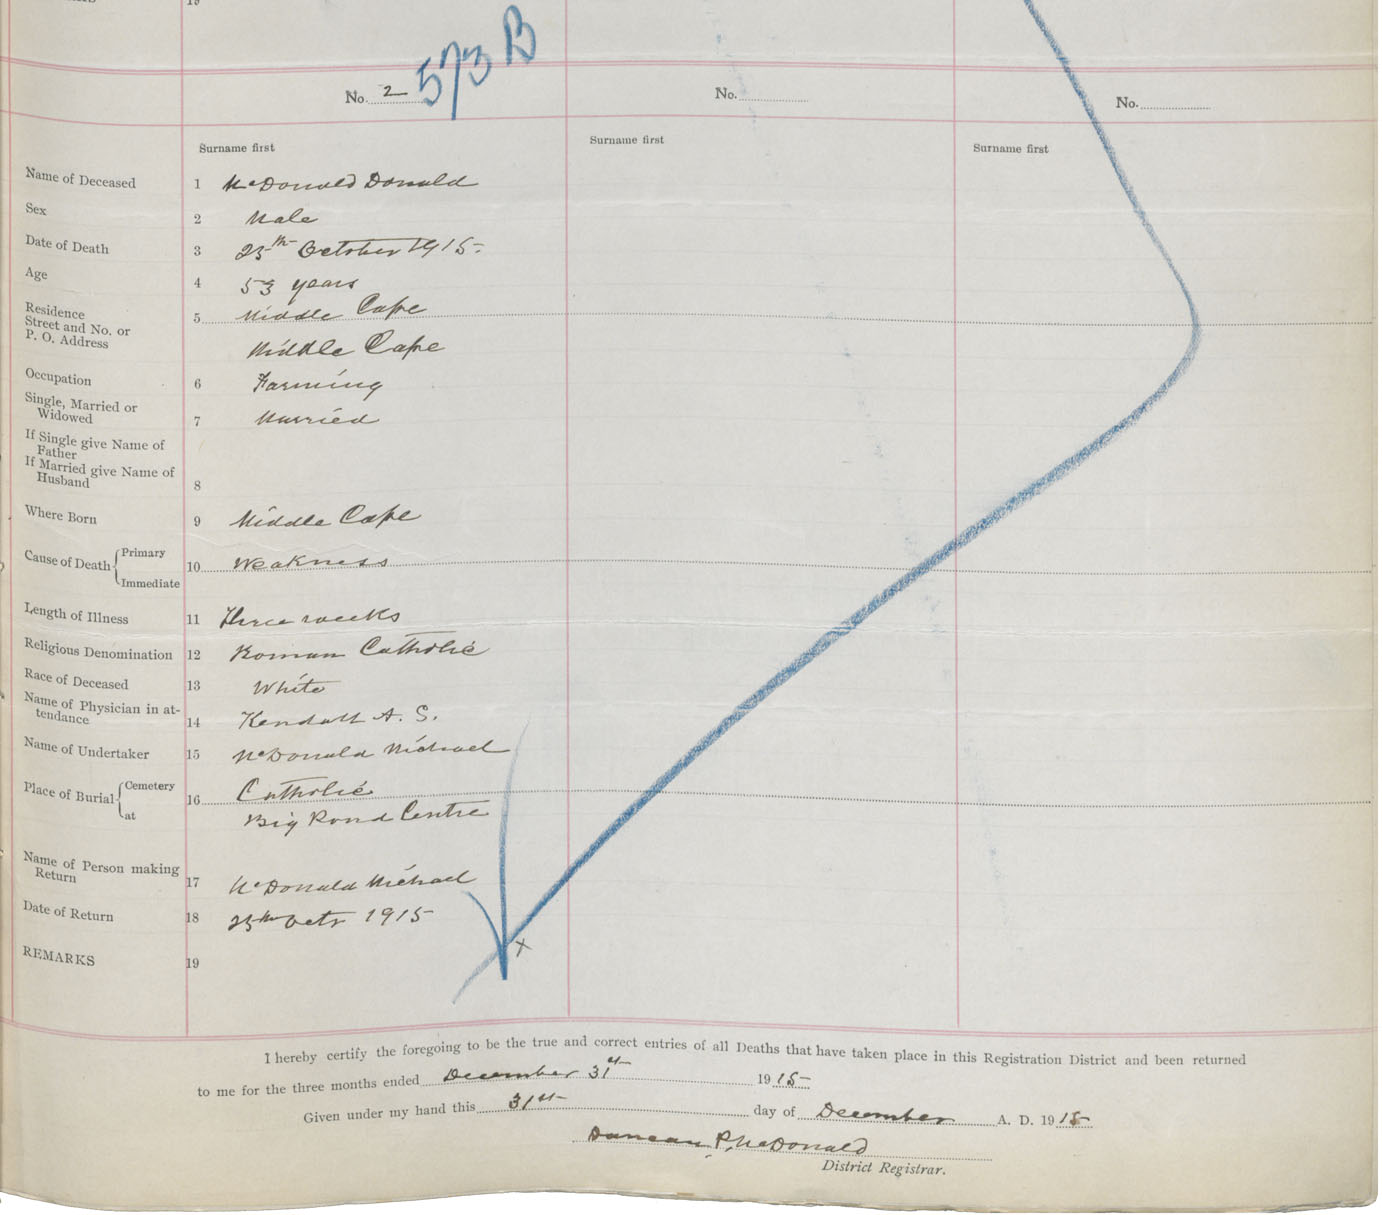 19
573 B
No. 2 No. No.
Surname first Surname first Surname first
Name of Deceased 1 McDonald Donald
Sex 2 Male
Date of Death 3 25th October 1915
Age 4 53 years
Residence 5 Middle Cape
Street and No. or
P. O. Address Middle Cape
Occupation 6 Farming
Single, Married or
Widowed 7 Married
If Single give Name of
Father
If Married give Name of
Husband 8
Where Born 9 Middle Cape
Cause of Death { Primary
10 Weakness
Immediate
Length of Illness 11 Three weeks
Religious Denomination 12 Roman Catholic
Race of Deceased 13 White
Name of Physician in at-
tendance 14 Kendall A. S.
Name of Undertaker 15 McDonald Michael
Place of Burial { Cemetery 16 Catholic
at Big Pond Centre
Name of Person making
Return 17 McDonald Michael
Date of Return 18 25th Octr 1915
REMARKS 19
x
I hereby certify the foregoing to be the true and correct entries of all Deaths that have taken place in this Registration District and been returned
to me for the three months ended December 31st 1915
Given under my hand this 31st day of December A. D. 1915
Duncan P. McDonald
District Registrar.